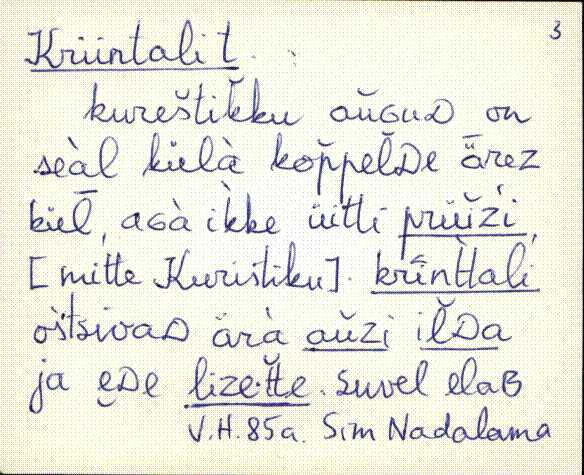 3
Krüntali t.
kureštik̆ku aŭGuD on
seàl külà kop̆pel̆De ärez
kül̄, aGà ikke üìtti prüǜži,
[mitte Kuristiku]. krîǹttali
oštsivaD ärà aŭzi il̆Da
ja eDe lizet̆te. suvel elaB
V.H. 85a. Sim Nadalama